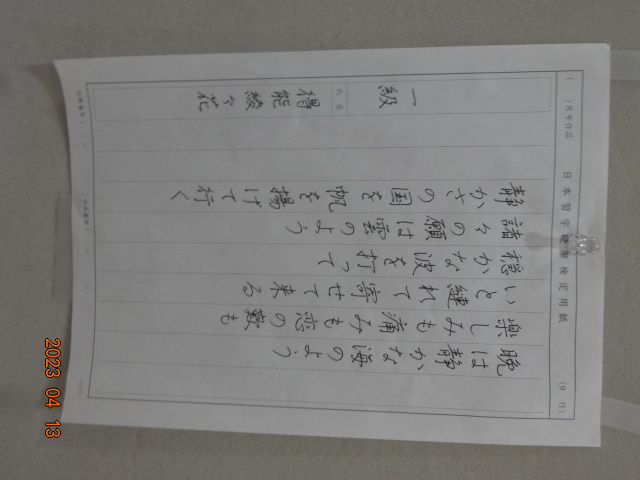 ( )月号作品 日本習字硬筆検定用紙 (9 行)
晩は静かな海のよう
楽しみも痛みも恋の歎も
いと縺れて寄せて来る
穏かな波を打って
諸々の願は雲のよう
静かさの国を帆を揚げて行く
一級 氏名 得能綾々花
2023 04 13